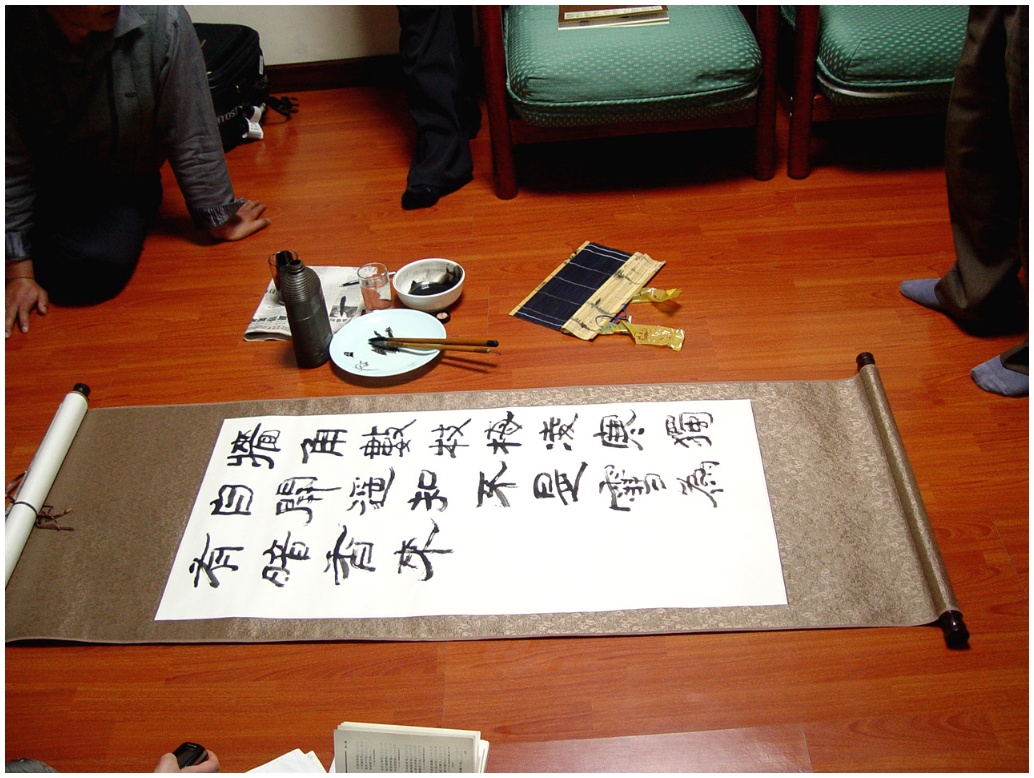 牆角數枝梅凌寒獨
自開遥知不是雪為
有暗香來